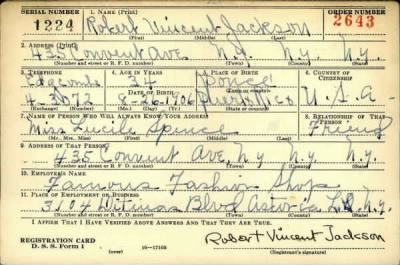 SERIAL NUMBER 1. NAME (Print) ORDER NUMBER
1224 Robert Vincent Jackson 2643
(First) (Middle) (Last)
2. ADDRESS (Print)
435 Convent Ave. N.Y. N.Y. N.Y.
(Number and street or R. F. D. number) (Town) (County) (State)
3. TELEPHONE 4. AGE IN YEARS 5. PLACE OF BIRTH 6. COUNTRY OF CITIZENSHIP
Edgecombe 34 Ponce
DATE OF BIRTH
4-3073 8-26-1906 Puerto Rico U.S.A
7. NAME OF PERSON WHO WILL ALWAYS KNOW YOUR ADDRESS 8. RELATIONSHIP OF THAT PERSON
Miss Lucile Spence Friend
(Mr., Mrs., Miss) (First) (Middle) (Last)
9. ADDRESS OF THAT PERSON
435 Convent Ave, N.Y N.Y. N.Y.
(Number and street or R. F. D. number) (Town) (County) (State)
10. EMPLOYER'S NAME
Famous Fashion Shops
11. PLACE OF EMPLOYMENT OR BUSINESS
3104 Ditmas Blvd Astoria L.I. N.Y.
(Number and street or R. F. D. number) (Town) (County) (State)
I AFFIRM THAT I HAVE VERIFIED ABOVE ANSWERS AND THAT THEY ARE TRUE.
REGISTRATION CARD
D. S. S. Form 1 (over) 16-17105 Robert Vincent Jackson
(Registrant's signature)